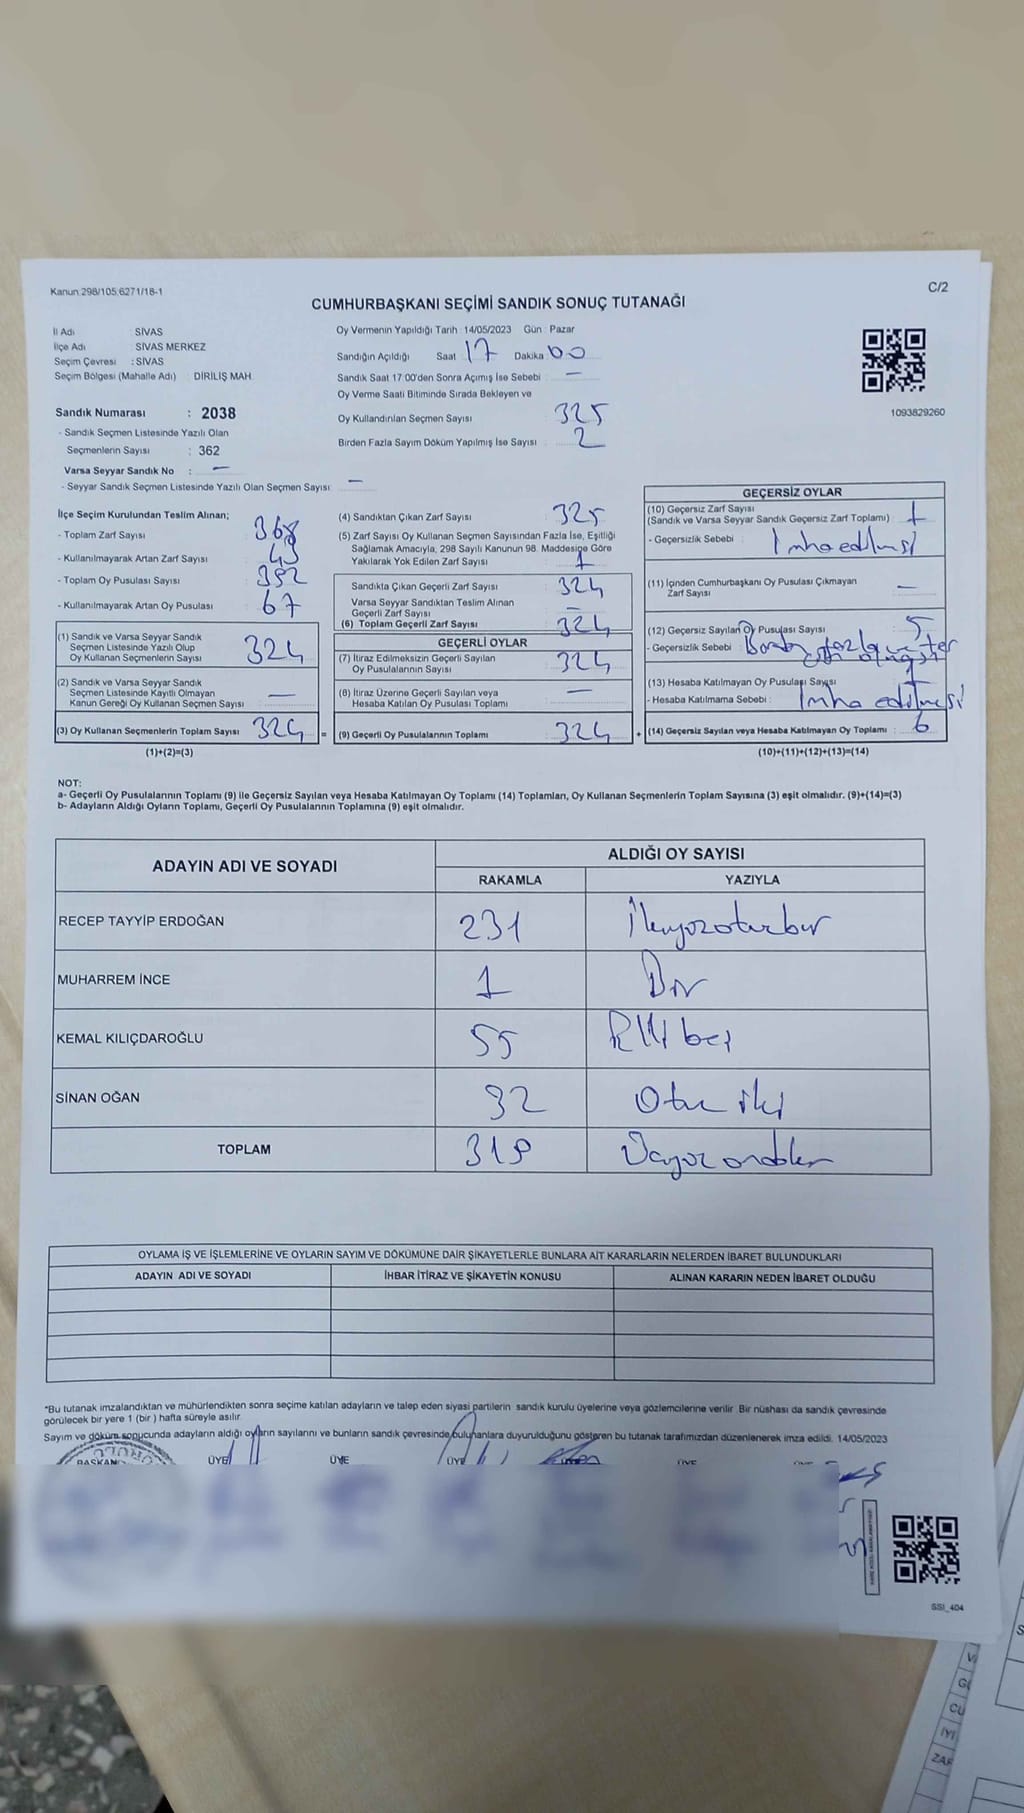 Kanun:298/105,6271/18-1
C/2
CUMHURBAŞKANI SEÇİMİ SANDIK SONUÇ TUTANAĞI
İl Adı SİVAS
İlçe Adı SİVAS MERKEZ
Seçim Çevresi : SİVAS
Seçim Bölgesi (Mahalle Adı) : DİRİLİŞ MAH.
Sandık Numarası : 2038
- Sandık Seçmen Listesinde Yazılı Olan
Seçmenlerin Sayısı : 362
Varsa Seyyar Sandık No : —
- Seyyar Sandık Seçmen Listesinde Yazılı Olan Seçmen Sayısı: —
Oy Vermenin Yapıldığı Tarih : 14/05/2023 Gün : Pazar
Sandığın Açıldığı Saat : 17 Dakika : 00
Sandık Saat 17:00'den Sonra Açımış İse Sebebi : —
Oy Verme Saati Bitiminde Sırada Bekleyen ve
Oy Kullandırılan Seçmen Sayısı : 325
Birden Fazla Sayım Döküm Yapılmış İse Sayısı : 2
1093829260
İlçe Seçim Kurulundan Teslim Alınan;
- Toplam Zarf Sayısı : 368
- Kullanılmayarak Artan Zarf Sayısı : 43
- Toplam Oy Pusulası Sayısı : 392
- Kullanılmayarak Artan Oy Pusulası : 67
(1) Sandık ve Varsa Seyyar Sandık
Seçmen Listesinde Yazılı Olup
Oy Kullanan Seçmenlerin Sayısı 324
(2) Sandık ve Varsa Seyyar Sandık
Seçmen Listesinde Kayıtlı Olmayan
Kanun Gereği Oy Kullanan Seçmen Sayısı : —
(3) Oy Kullanan Seçmenlerin Toplam Sayısı : 324
(1)+(2)=(3)
(4) Sandıktan Çıkan Zarf Sayısı : 325
(5) Zarf Sayısı Oy Kullanan Seçmen Sayısından Fazla İse, Eşitliği
Sağlamak Amacıyla, 298 Sayılı Kanunun 98. Maddesine Göre
Yakılarak Yok Edilen Zarf Sayısı : 1
Sandıkta Çıkan Geçerli Zarf Sayısı : 324
Varsa Seyyar Sandıktan Teslim Alınan
Geçerli Zarf Sayısı : —
(6) Toplam Geçerli Zarf Sayısı : 324
GEÇERLİ OYLAR
(7) İtiraz Edilmeksizin Geçerli Sayılan
Oy Pusulalarının Sayısı : 324
(8) İtiraz Üzerine Geçerli Sayılan veya
Hesaba Katılan Oy Pusulası Toplamı : —
= (9) Geçerli Oy Pusulalarının Toplamı : 324
GEÇERSİZ OYLAR
(10) Geçersiz Zarf Sayısı
(Sandık ve Varsa Seyyar Sandık Geçersiz Zarf Toplamı) : 1
- Geçersizlik Sebebi : İmha edilmesi
(11) İçinden Cumhurbaşkanı Oy Pusulası Çıkmayan
Zarf Sayısı : —
(12) Geçersiz Sayılan Oy Pusulası Sayısı : 5
- Geçersizlik Sebebi :
(13) Hesaba Katılmayan Oy Pusulası Sayısı
- Hesaba Katılmama Sebebi : İmha edilmesi
+ (14) Geçersiz Sayılan veya Hesaba Katılmayan Oy Toplamı : 6
(10)+(11)+(12)+(13)=(14)
NOT:
a- Geçerli Oy Pusulalarının Toplamı (9) ile Geçersiz Sayılan veya Hesaba Katılmayan Oy Toplamı (14) Toplamları, Oy Kullanan Seçmenlerin Toplam Sayısına (3) eşit olmalıdır. (9)+(14)=(3)
b- Adayların Aldığı Oyların Toplamı, Geçerli Oy Pusulalarının Toplamına (9) eşit olmalıdır.
ADAYIN ADI VE SOYADI ALDIĞI OY SAYISI
RAKAMLA YAZIYLA
RECEP TAYYİP ERDOĞAN 231 İkiyüzotuzbir
MUHARREM İNCE 1 Bir
KEMAL KILIÇDAROĞLU 55 Elli beş
SİNAN OĞAN 32 Otuz iki
TOPLAM 319 Üçyüz ondokuz
OYLAMA İŞ VE İŞLEMLERİNE VE OYLARIN SAYIM VE DÖKÜMÜNE DAİR ŞİKAYETLERLE BUNLARA AİT KARARLARIN NELERDEN İBARET BULUNDUKLARI
ADAYIN ADI VE SOYADI İHBAR İTİRAZ VE ŞİKAYETİN KONUSU ALINAN KARARIN NEDEN İBARET OLDUĞU
*Bu tutanak imzalandıktan ve mühürlendikten sonra seçime katılan adayların ve talep eden siyasi partilerin sandık kurulu üyelerine veya gözlemcilerine verilir. Bir nüshası da sandık çevresinde
görülecek bir yere 1 (bir ) hafta süreyle asılır.
Sayım ve döküm sonucunda adayların aldığı oyların sayılarını ve bunların sandık çevresinde bulunanlara duyurulduğunu gösteren bu tutanak tarafımızdan düzenlenerek imza edildi. 14/05/2023
BAŞKAN ÜYE ÜYE ÜYE ÜYE
SSI_404
ZAR